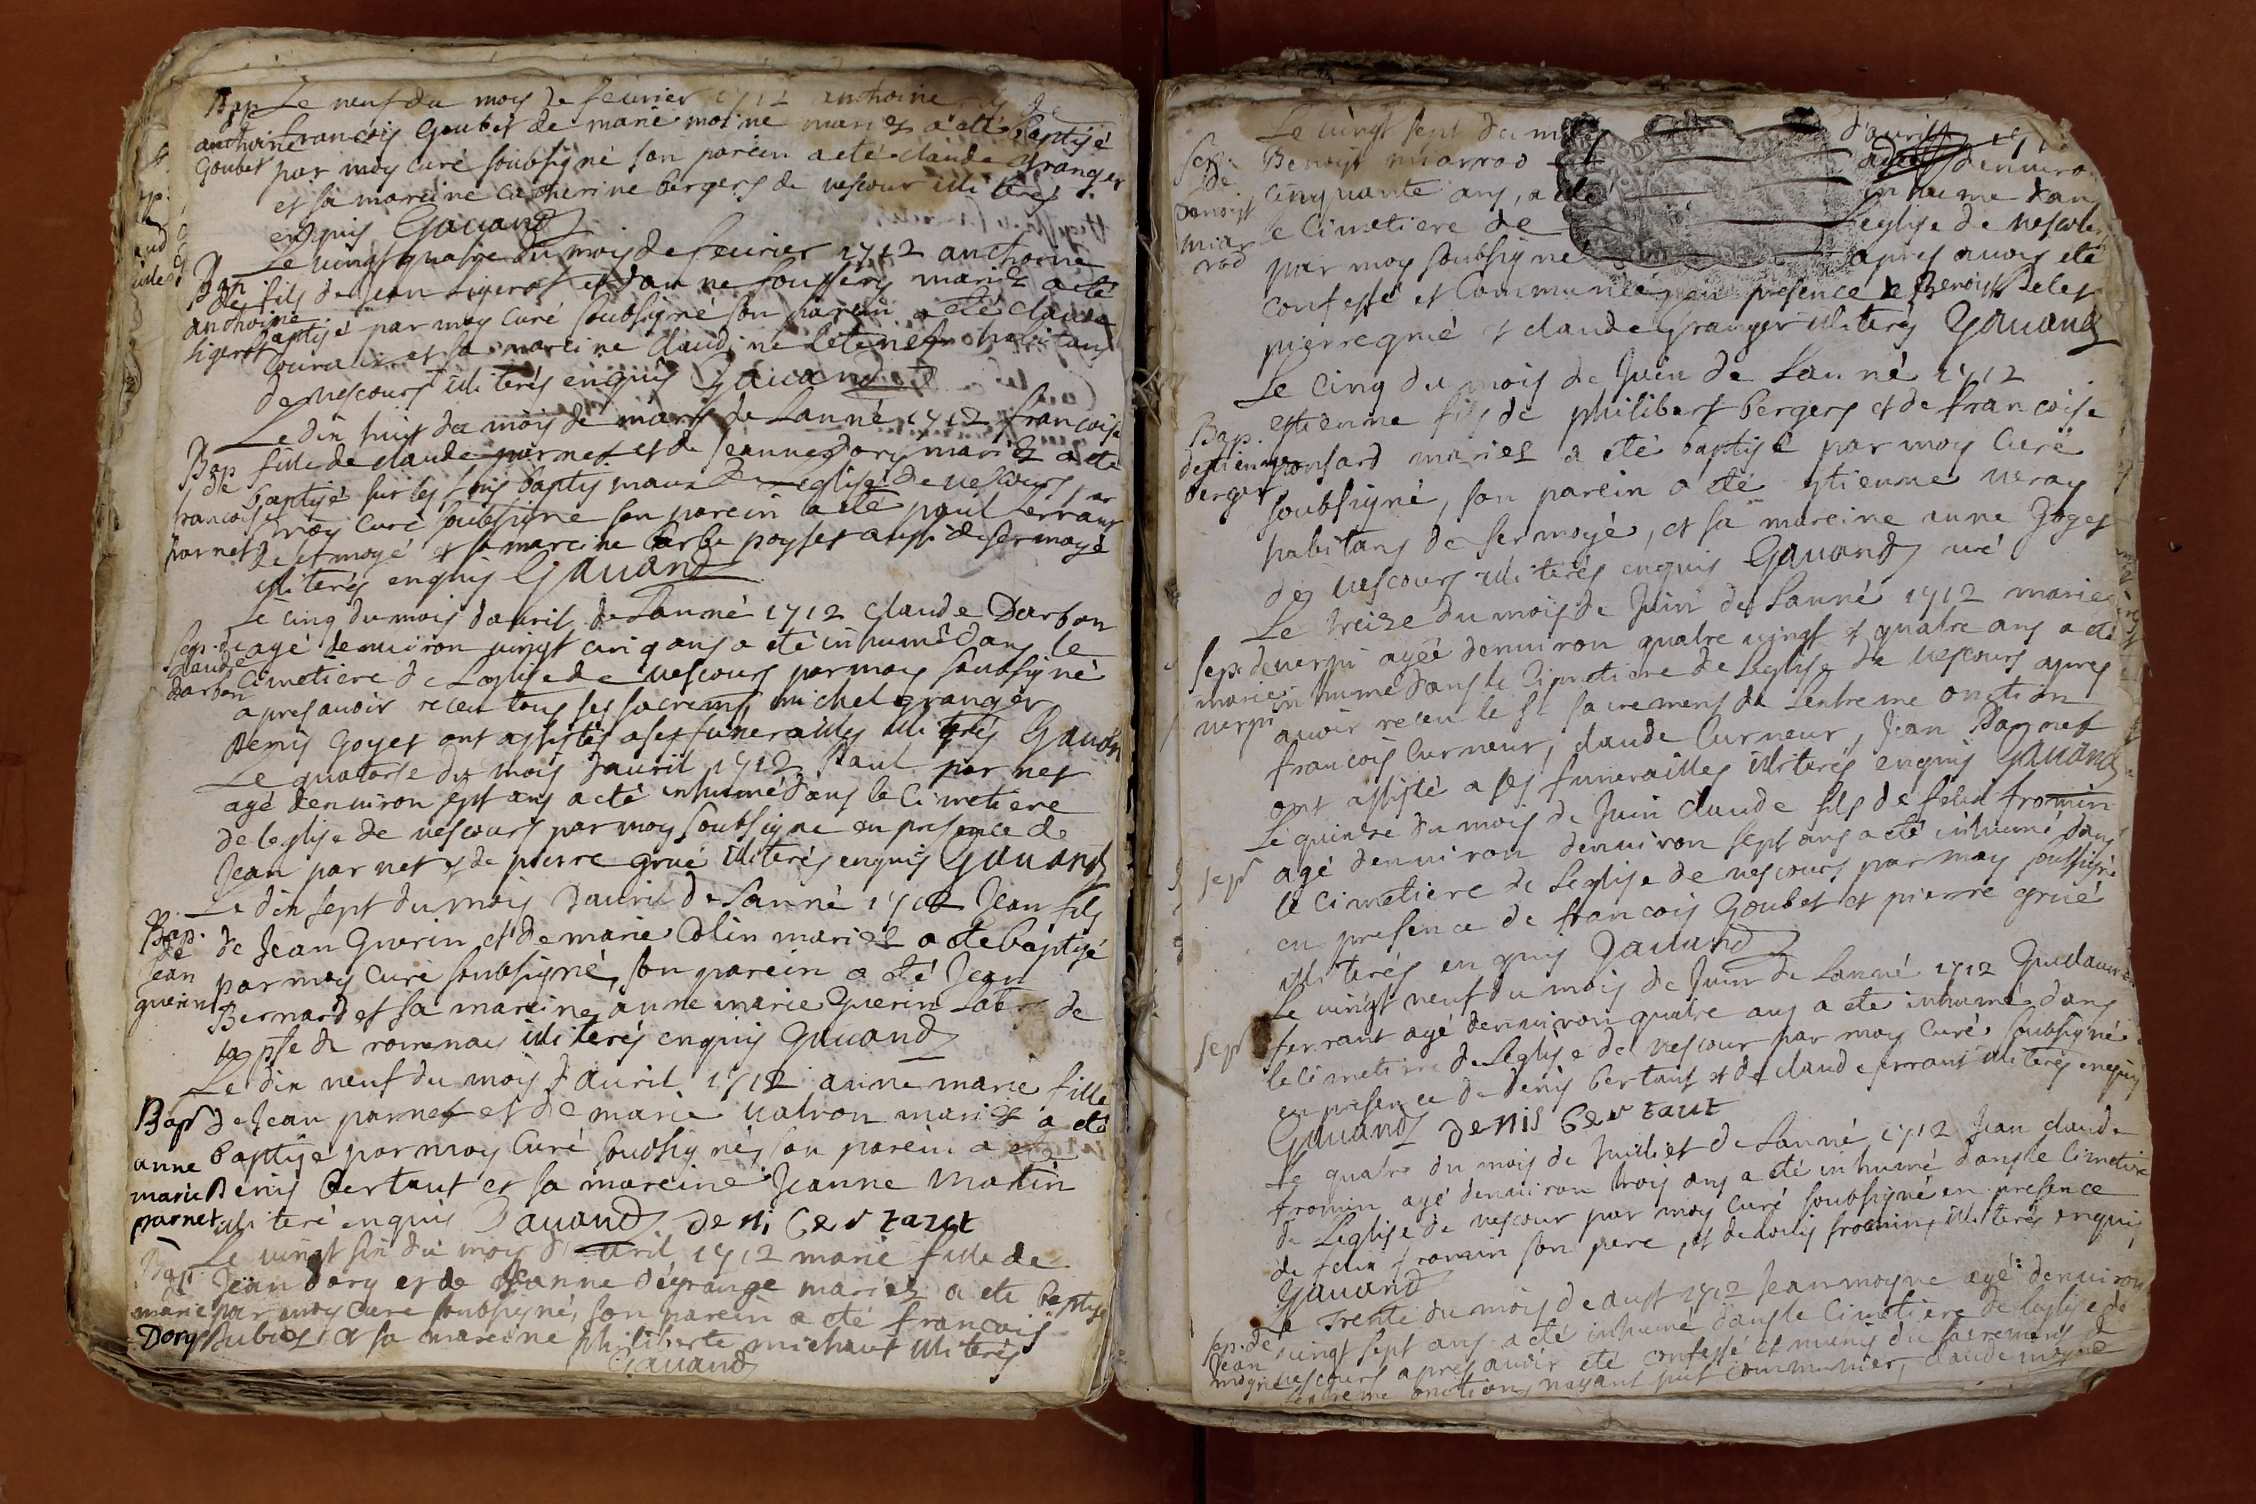 Bap Le neuf du mois de feuvrier 1712 anthoine fils de
anthoine francois Goubet de marie moine mariez a eté baptisé
Goubet par moy curé soubsigné son parein a eté claude Granger
et sa mareine catherine bergers de vescour illiterés
enquis Gauand
Le vingt quatre du mois de feuvrier 1712 anthoine
Bap de fils de jean Ligerot et danne mariez a eté
anthoine baptisé par moy curé soubsigné son parein a eté claude
ligerot et sa mareine claudine habitans
de vescours illiterés enquis Gauand
Le dix huit du mois de mars de Lanné 1712 francoise
Bap fille de claude parnet et de Jeanne dory mariez a eté
de baptisé sur les fons baptismaux de Leglise de vescours par
francoise moy curé soubsigné son parein a eté paul ferraut
parnet de sermoyé et sa mareine barbe poyset aussi de sermoyé
illiterés enquis Gauand
Le cinq du mois dauril de Lanné 1712 claude Darbon
Sep. de agé denuiron vingt cinq ans a eté inhumé dans le
claude cimetiere de Leglise de vescours par moy soubsigné
darbon apres auoir receu tous ses sacremens michel granger
Denis Goyet ont assistés a ses funerailles illiterés Gauand
Le quatorse du mois dauril 1712 Paul parnet
agé denuiron sept ans a eté inhumé dans le cimetiere
de leglise de vescours par moy soubsigne en presence de
Jean parnet et de pierre grué illiterés enquis Gauand
Le dix sept du mois dauril de Lanné 1712 Jean fils
Bap. de Jean Guerin et de marie Colin mariez a eté baptisé
de
Jean par moy curé soubsigné, son parein a eté Jean
guerin Bernard et sa mareine anne marie Guerin de
la psse de romenai illiterés enquis Gauand
Le dix neuf du mois dauril 1712 anne marie fille
Bap de Jean parnet et de marie uatron mariez a eté
anne baptisé par moy curé soubsigné, son parein a eté
marie Denis bertaut et sa mareine Jeanne Matin
parnet illiteré enquis Gauand deni bertaut
Le vingt six du mois dauril 1712 marie fille de
Bap Jean dory et de Jeanne degrange mariez a eté baptisé
marie par moy curé soubsigné, son parein a eté francois
Dory et sa mareine philiberte michaut illiterés
Gauand
Le vingt sept du mois d'auril
Sep. Benoist miarrod agé denuiron
de cinquante ans, a eté inhumé dans
Benoist le cimetiere de Leglise de vescours
miar par moy soubsigné apres auoir eté
rod confessé et communié, en presence de Benoist
pierre grué et claude Granger illiterés Gauand
Le cinq du mois de Juin de Lanné 1712
Bap. estienne fils de philibert bergers et de francoise
destienne ronsard mariez a eté baptisé par moy curé
berger soubsigné, son parein a eté estienne veray
habitans de sermoyé, et sa mareine anne Joget
de vescours illiterés enquis Gauand curé
Le treise du mois de Juin de Lanné 1712 marie
Sep. de vergui agée denuiron quatre vingt et quatre ans a eté
marie inhumé dans le cimetiere de Leglise de vescours apres
vergui auoir receu le st sacremens de Lextreme onction
francois curneur, claude curneur, Jean Pagnet
ont assisté a ses funerailles illiterés enquis Gauand
Le quinze du mois de Juin claude fils de felix fromin
sep agé denuiron denuiron sept ans a eté inhumé dans
le cimetiere de Leglise de vescours par moy soussigné
en presence de francois Goubet et pierre grué
illiterés enquis Gauand
Le vingt neuf du mois de Juin de Lanné 1712
sep ferraut agé denuiron quatre ans a eté inhumé dans
le cimetiere de Leglise de vescour par moy curé soubsigné
en presence de denis bertaut et de claude ferraut illiterés enquis
Gauand denis bertaut
Le quatre du mois de Juilliet de Lanné 1712 Jean claude
fromin agé denuiron trois ans a eté inhumé dans le cimetiere
de Leglise de vescour par moy curé soubsigné en presence
de felix fromin son pere, et de fromin, illiterés enquis
Gauand
Le trente du mois de aust 1712 Jean moyne agé denuiron
Sep. de vingt sept ans a eté inhumé dans le cimetiere de Leglise de
Jean vescours apres auoir eté confessé et munis du sacremens de
moyne Lextreme onction, nayant put communier, claude moyne